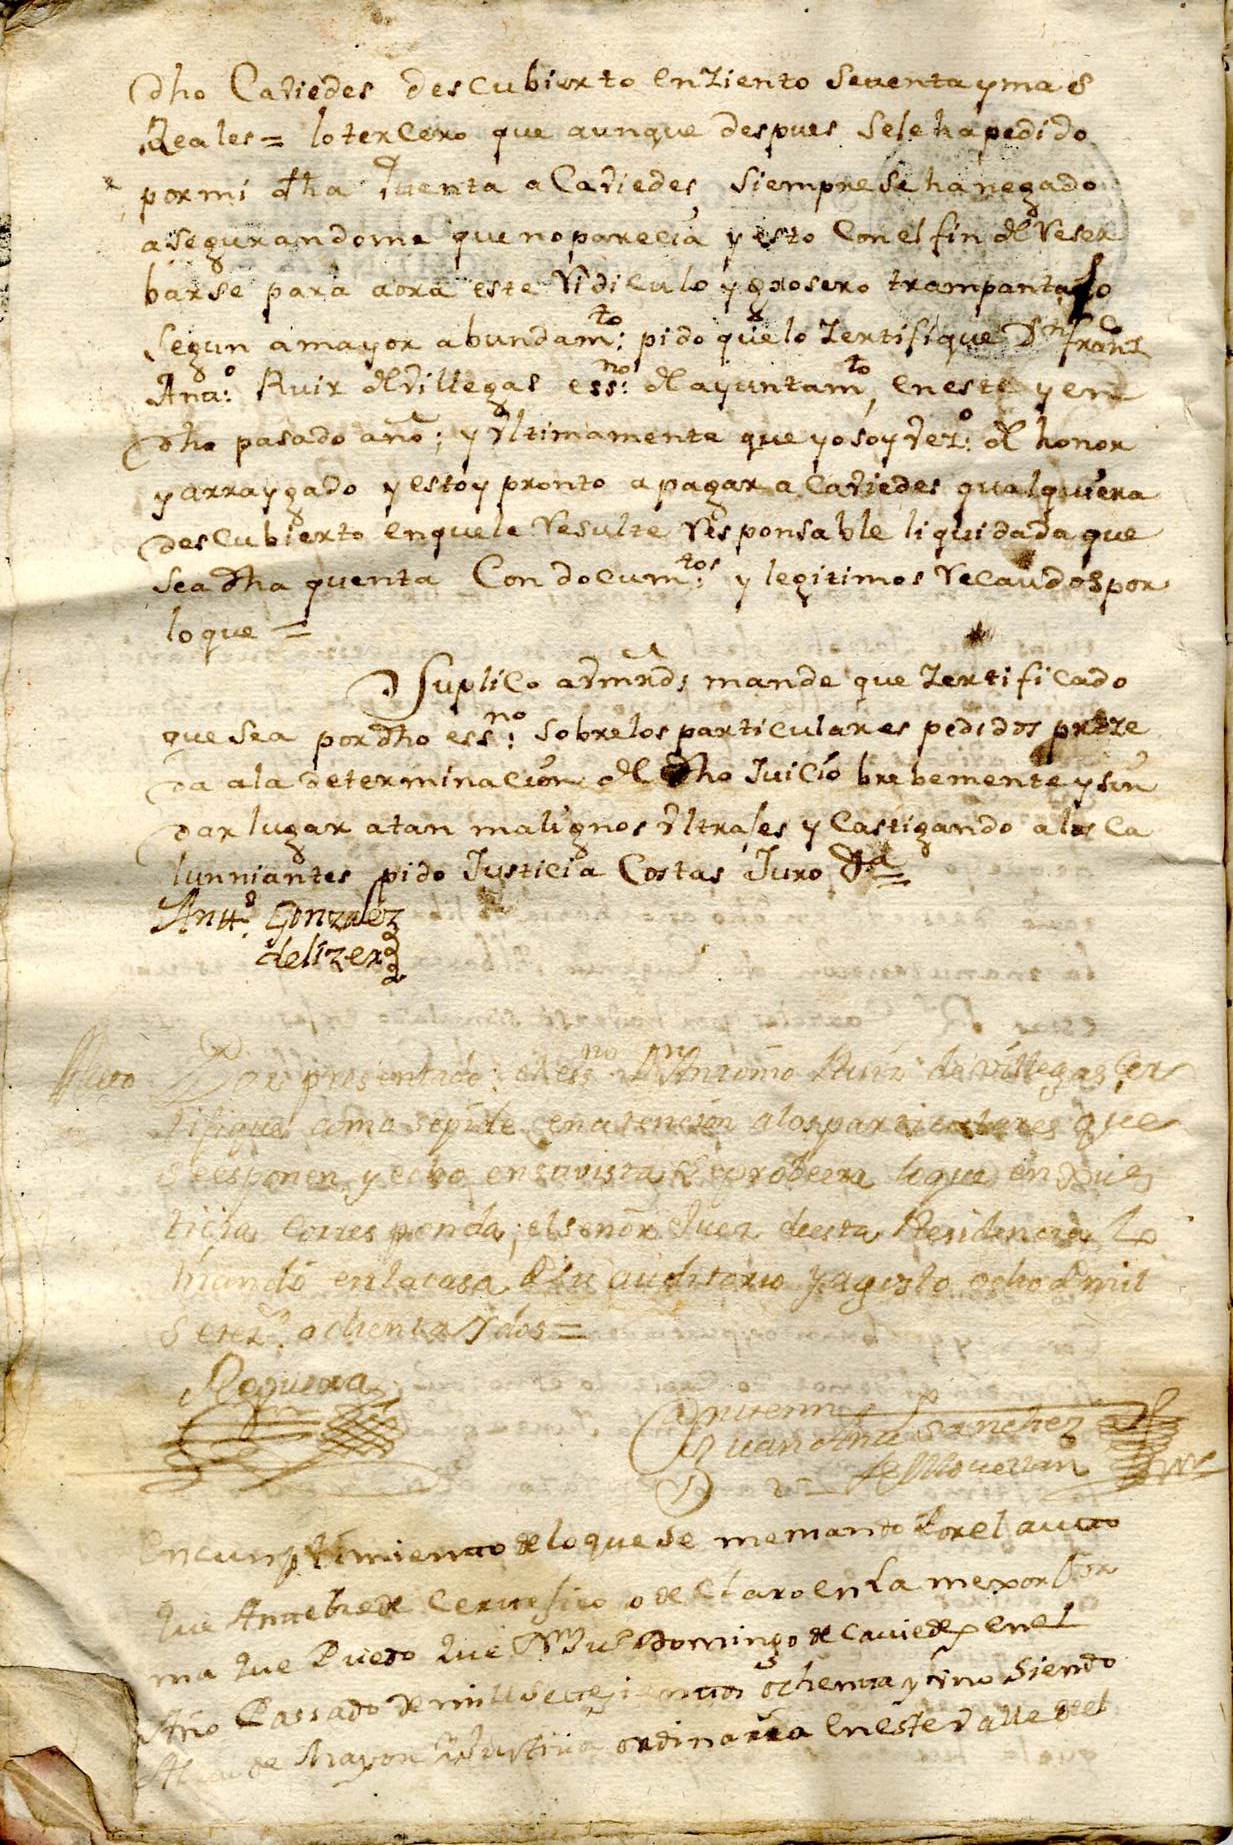 dho Caviedes descubierto en ziento setenta y mas
Reales = lo tercero que aunque despues se le ha pedido
por mi dha quenta a Caviedes, siempre se ha negado
asegurandome que no parecia y esto con el fin de reser
barse para aora este ridiculo y grosero trampantojo
segun a mayor abundamto: pido que lo zertifique Dn franco
Anto: Ruiz de Villegas essno: del ayuntamto, en este y en
dho pasado año; y ultimamente que yo soy vezo: de honor
y arraygado y estoy pronto a pagar a Caviedes qualquiera
descubierto en que le resulte responsable liquidada que
sea dha quenta con documtos: y legitimos recaudos por
lo que =
A Vmrd suplico mande que zertificado
que sea por dho essno: sobre los particulares pedidos proze
da a la determinacion del dho Juicio brebemente y sin
dar lugar a tan malignos ultrajes y castigando a los ca
lunniantes pido Justicia Costas Juro &a =
Antto. Gonzalez
de lizer
Auto Por presentado: el essno Dn Antonio Ruiz de Villegas Cer
tifique como se pide en atencion a los particulares que
se esponen, y echo en su vista se probeera lo que en Jus
ticia corresponda; el señor Juez de esta Residencia lo
mandó en la casa de su auditorio y agosto ocho de mil
setezs. ochenta y dos =
Reguera
Ante mi
Juan Anto Sanchez
de Movellan
En cunplimiento de lo que se me manda por el auto
que Antecede Certifico o declaro en la mexor for
ma que Puedo que Dn Domingo de Caviedes en el
Año Passado de mill setezientos ochenta y uno siendo
Alcalde Mayor y Justicia ordinaria en este Valle de el